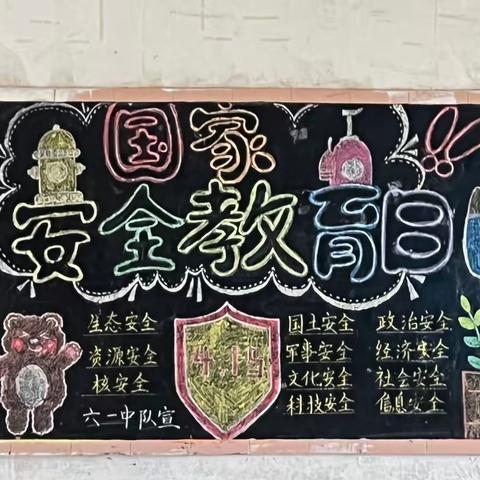 国家
安全教育日
生态安全
资源安全
核安全
六一中队宣
4.15
国土安全 政治安全
军事安全 经济安全
文化安全 社会安全
科技安全 信息安全